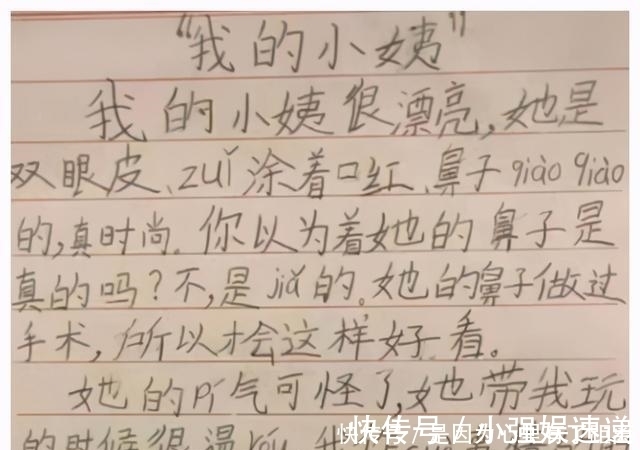 “我的小姨”
我的小姨很漂亮,她是
双眼皮、zuǐ涂着口红、鼻子qiào qiào
的,真时尚。你以为着她的鼻子是
真的吗?不,是jiǎ的。她的鼻子做过
手术,所以才会这样好看。
她的pí气可怪了,她带我玩
的时候很温róu
快传号/小强娱速递